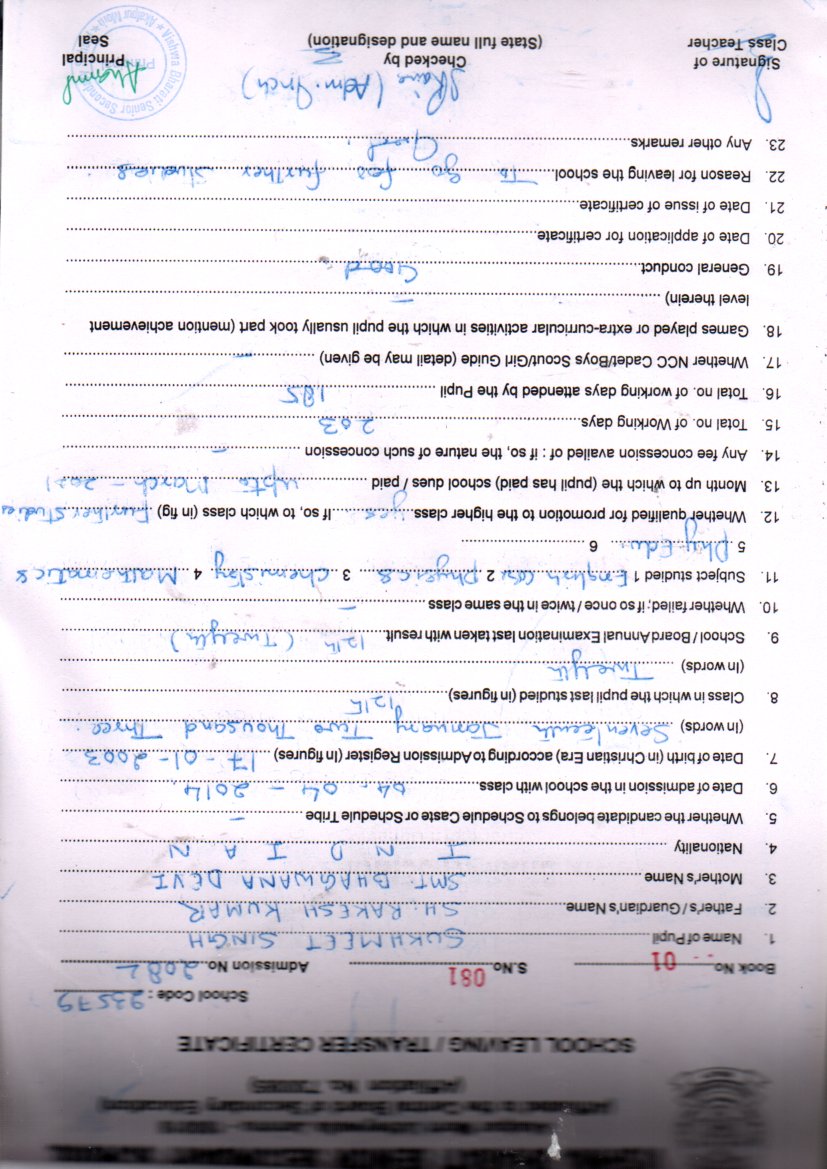 (Affiliated to the Central Board of Secondary Education)
(Affiliation No. 730085)
SCHOOL LEAVING / TRANSFER CERTIFICATE
School Code : 23579
Book No. 01 S.No 081 Admission No. 2082
1. Name of Pupil SUKHMEET SINGH
2. Father's / Guardian's Name SH. RAKESH KUMAR
3. Mother's Name SMT. BHAGWANA DEVI
4. Nationality I N D I A N
5. Whether the candidate belongs to Schedule Caste or Schedule Tribe –
6. Date of admission in the school with class. 04 - 04 - 2014.
7. Date of birth (in Christian Era) according to Admission Register (In figures) 17-01-2003
(In words) Seventeenth January Two Thousand Three.
8. Class in which the pupil last studied (in figures) 12th
(In words) Twelfth
9. School / Board Annual Examination last taken with result. 12th (Twelfth)
10. Whether failed; if so once / twice in the same class –
11. Subject studied 1 English 2 Physics 3 Chemistry 4 Mathematics
5 Phy. Edu. 6
12. Whether qualified for promotion to the higher class yes If so, to which class (in fig) Further Studies
13. Month up to which the (pupil has paid) school dues / paid upto March - 2021
14. Any fee concession availed of : if so, the nature of such concession –
15. Total no. of Working days. 203
16. Total no. of working days attended by the Pupil 185
17. Whether NCC Cadet/Boys Scout/Girl Guide (detail may be given) –
18. Games played or extra-curricular activities in which the pupil usually took part (mention achievement
level therein) –
19. General conduct. Good.
20. Date of application for certificate
21. Date of issue of certificate
22. Reason for leaving the school To go for further studies
23. Any other remarks. Good.
(Adm. Inch)
Signature of Checked by Principal
Class Teacher (State full name and designation) Seal
Vishwa Bharati Senior Secondary